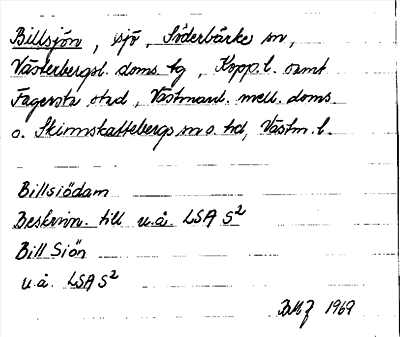 Billsjön, sjö, Söderbärke sn,
Västerbergsl. doms. tg, Kopp. l. samt
Fagersta stad, Västmanl. mell. doms.
o. Skinnskattebergs sn o. hd, Västm. l.
Billsiödam
Beskrivn. till u.å. LSA S²
Bill Siön
u.å. LSA S²
1969